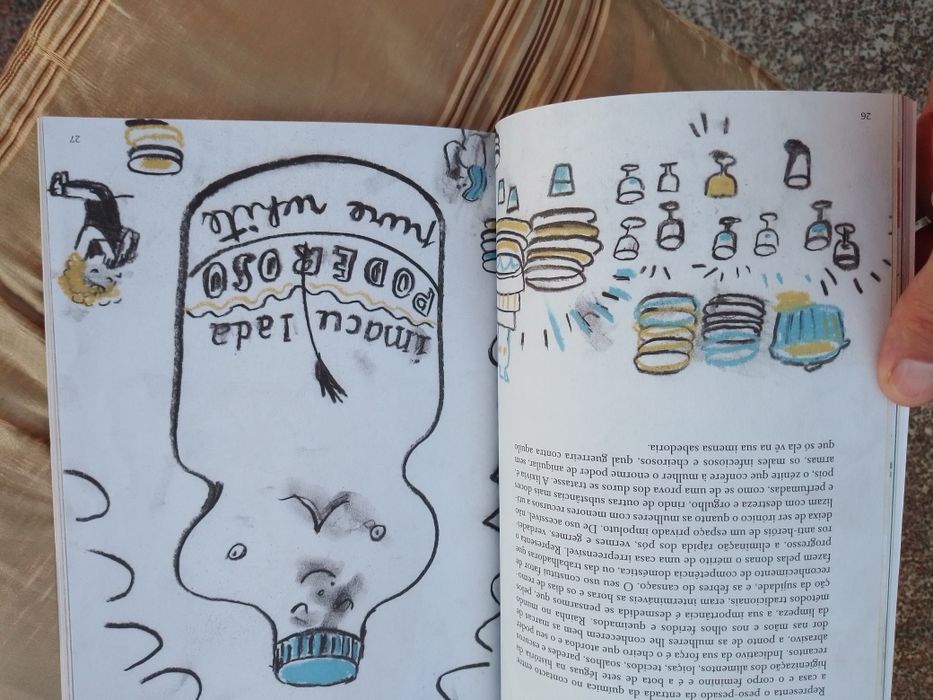 Representa o peso-pesado da entrada da química no contacto entre
a casa e o corpo feminino e é a bota de sete léguas na história da
higienização dos alimentos, loiças, tecidos, soalhos, paredes e escusos
recantos. Indicativo da sua força é o cheiro que atordoa e o seu poder
abrasivo, a ponto de as mulheres lhe conhecerem bem as marcas de
dor nas mãos e nos olhos feridos e queimados. Rainha no mundo
da limpeza, a sua importância é desmedida se pensarmos que, pelos
métodos tradicionais, eram intermináveis as horas e os dias de remo-
ção da sujidade, e as febres do cansaço. O seu uso constitui fator de
reconhecimento de competência doméstica, ou das trabalhadoras que
fazem pelas donas o mérito de uma casa irrepreensível. Representa o
progresso, a eliminação rápida dos pós, vermes e germes, verdadei-
ros anti-heróis de um espaço privado impoluto. De uso acessível, não
deixa de ser irónico o quanto as mulheres com menores recursos a uti-
lizam com destreza e orgulho, rindo de outras substâncias mais doces
e perfumadas, como se de uma prova dos duros se tratasse. A lixívia é,
pois, o zénite que confere à mulher o enorme poder de aniquilar, sem
armas, os males infeciosos e cheirosos, qual guerreira contra aquilo
que só ela vê na sua imensa sabedoria.
26
imaculada
PODEROSO
pure white
27